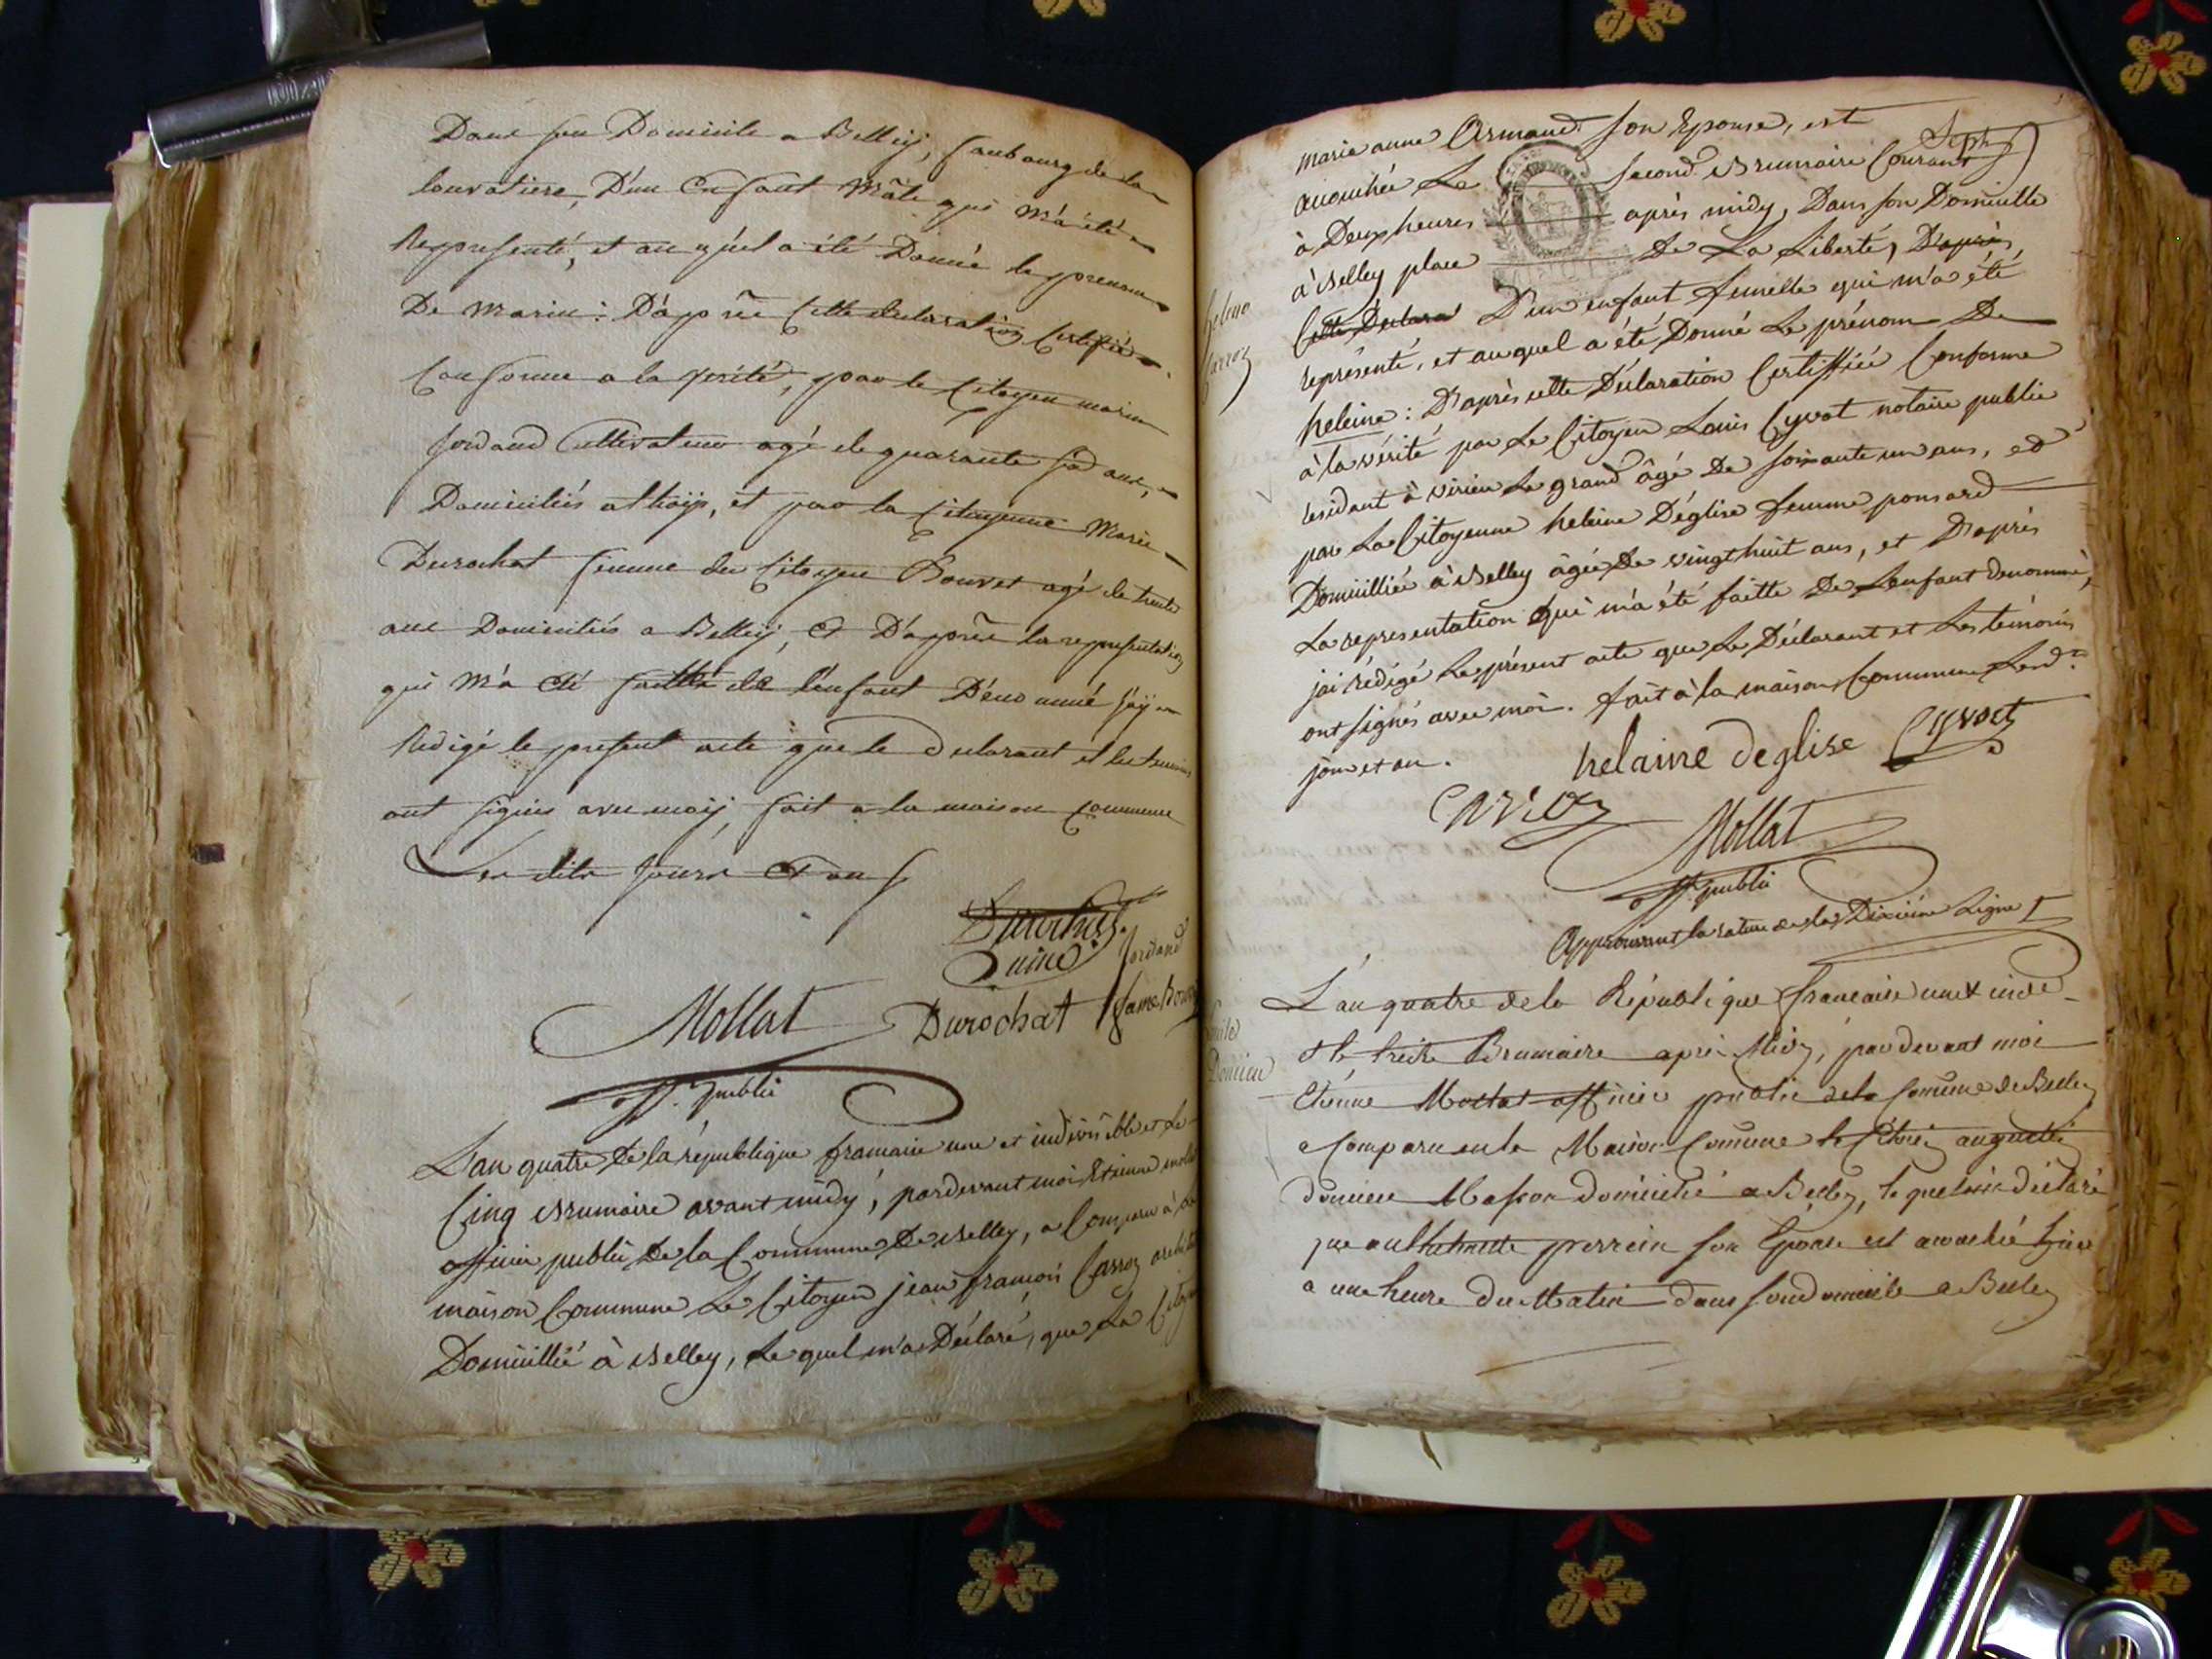 Dans son Domicile a Belleÿ, faubourg de la
louvatiere, D'un Enfant Mâle qui M'a été
Représenté, et au quel a été Donné le prenom
De Marin : D'après Cette declaration Certifiée
Conforme a la Verité, par le Citoyen marin
Jordand Cultivateur agé de quarante six ans,
Domiciliés a, et par la Citoyenne Marie
Durochat femme du Citoyen Bouvet agé de trente
ans Domiciliés a Belleÿ, Et D'après la representation
qui M'a été faitte de l'enfant Dénommé j'aÿ
Rédigé le present acte que le Declarant et les temoins
ont signés avec moÿ, fait a la maison Commune
Les dits jours Et an
Jordand
ainé
Mollat Durochat fame Bouvet
off. public
L'an quatre De la république francaise une et indivisible et Le
Cinq Brumaire avant midy, pardevant moi Etienne mollat
officier public De la Commune De Belley, a Comparu à la
maison Commune Le Citoyen jean françois Carroz
Domicillié à Belley, Le quel m'a Déclaré, que La Citoyenne
Sept
marie anne Armand son Epouse, est
accouchée Le second Brumaire Courant
à Deux heures après midy, Dans son Domicille
à Belley place De La Liberté, D'après
Cette Déclara D'un enfant femelle qui m'a été
heleine
Carroz
représenté, et auquel a été Donné Le prénom De
heleine : D'après cette Déclaration Certiffiée Conforme
à la vérité par Le Citoyen Louis Cyvoct notaire public
residant à virieu Le grand âgé De soixante un ans, et
par La Citoyenne heleine D'église femme ponsard
Domicilliée à Belley âgée De vingt huit ans, et D'après
La representation qui m'a été faitte De L'enfant denommé,
jai rédigé Le présent acte que Le Déclarant et Les témoins
ont signés avec moi. fait à la maison Commune Lesd.
jour et an.
helaine deglise Cyvoct
Carroz
Mollat
off. public
Approuvant la rature de la Dixième Ligne
L'an quatre de la République francaise une et indi
& le treize Brumaire après Midy, pardevant moi
Etienne Mollat officier public de la Comune de Belley
Domieu
a Comparu en la Maison Comune le Citoien augustin
domieu Masson domicilié a Belley, le quel m'a déclaré
que perrein son Epouse est accouchée hier
a une heure du Matin dans son domicile a Belley